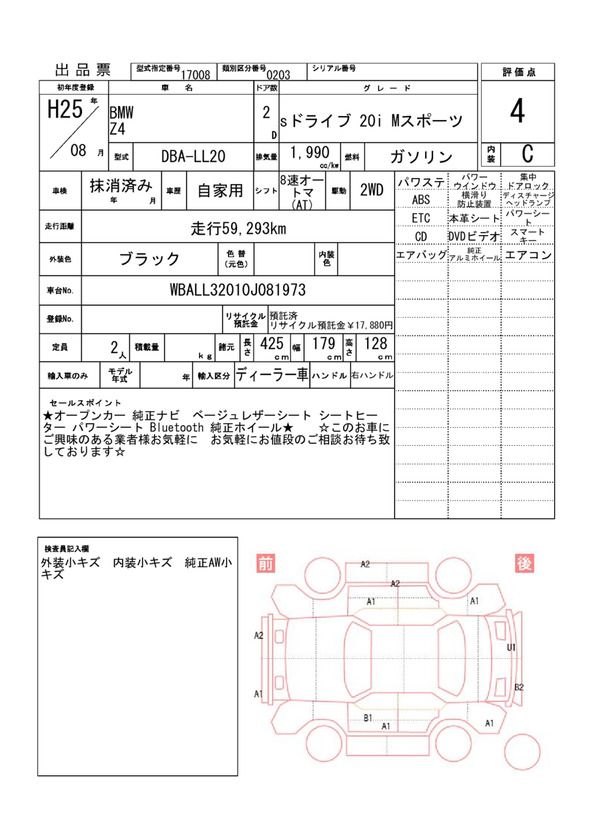 出品票 型式指定番号 17008 類別区分番号 0203 シリアル番号 評価点
初年度登録 車名 ドア数 グレード
H25年 BMW 2D sドライブ 20i Mスポーツ 4
Z4
08月 型式 DBA-LL20 排気量 1,990 cc/kw 燃料 ガソリン 内装 C
車検 抹消済み 年 月 車歴 自家用 シフト 8速オートマ(AT) 駆動 2WD
パワステ パワーウインドウ 集中ドアロック
ABS 横滑り防止装置 ディスチャージヘッドランプ
走行距離 走行59,293km
ETC 本革シート パワーシート
CD DVDビデオ スマートキー
外装色 ブラック 色替(元色) 内装色
エアバッグ 純正アルミホイール エアコン
車台No. WBALL32010J081973
登録No. リサイクル預託金 預託済
リサイクル預託金￥17,880円
定員 2人 積載量 kg 諸元 長さ 425cm 幅 179cm 高さ 128cm
輸入車のみ モデル年式 年 輸入区分 ディーラー車 ハンドル 右ハンドル
セールスポイント
★オープンカー 純正ナビ ベージュレザーシート シートヒー
ター パワーシート Bluetooth 純正ホイール★ ☆このお車に
ご興味のある業者様お気軽に お気軽にお値段のご相談お待ち致
しております☆
検査員記入欄
外装小キズ 内装小キズ 純正AW小
キズ
前 後
A2
A2
A1 A1
A2 U1
A1 B2
B1 A1 A1